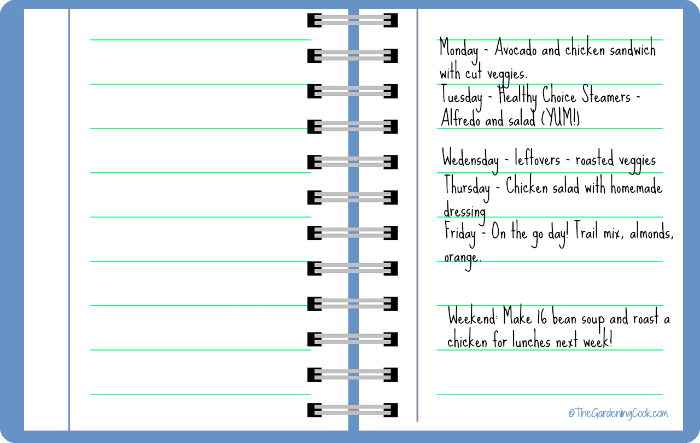 Monday - Avocado and chicken sandwich
with cut veggies.
Tuesday - Healthy Choice Steamers -
Alfredo and salad (YUM!)
Wedensday - leftovers - roasted veggies
Thursday - Chicken salad with homemade
dressing
Friday - On the go day! Trail mix, almonds,
orange.
Weekend: Make 16 bean soup and roast a
chicken for lunches next week!
©TheGardeningCook.com